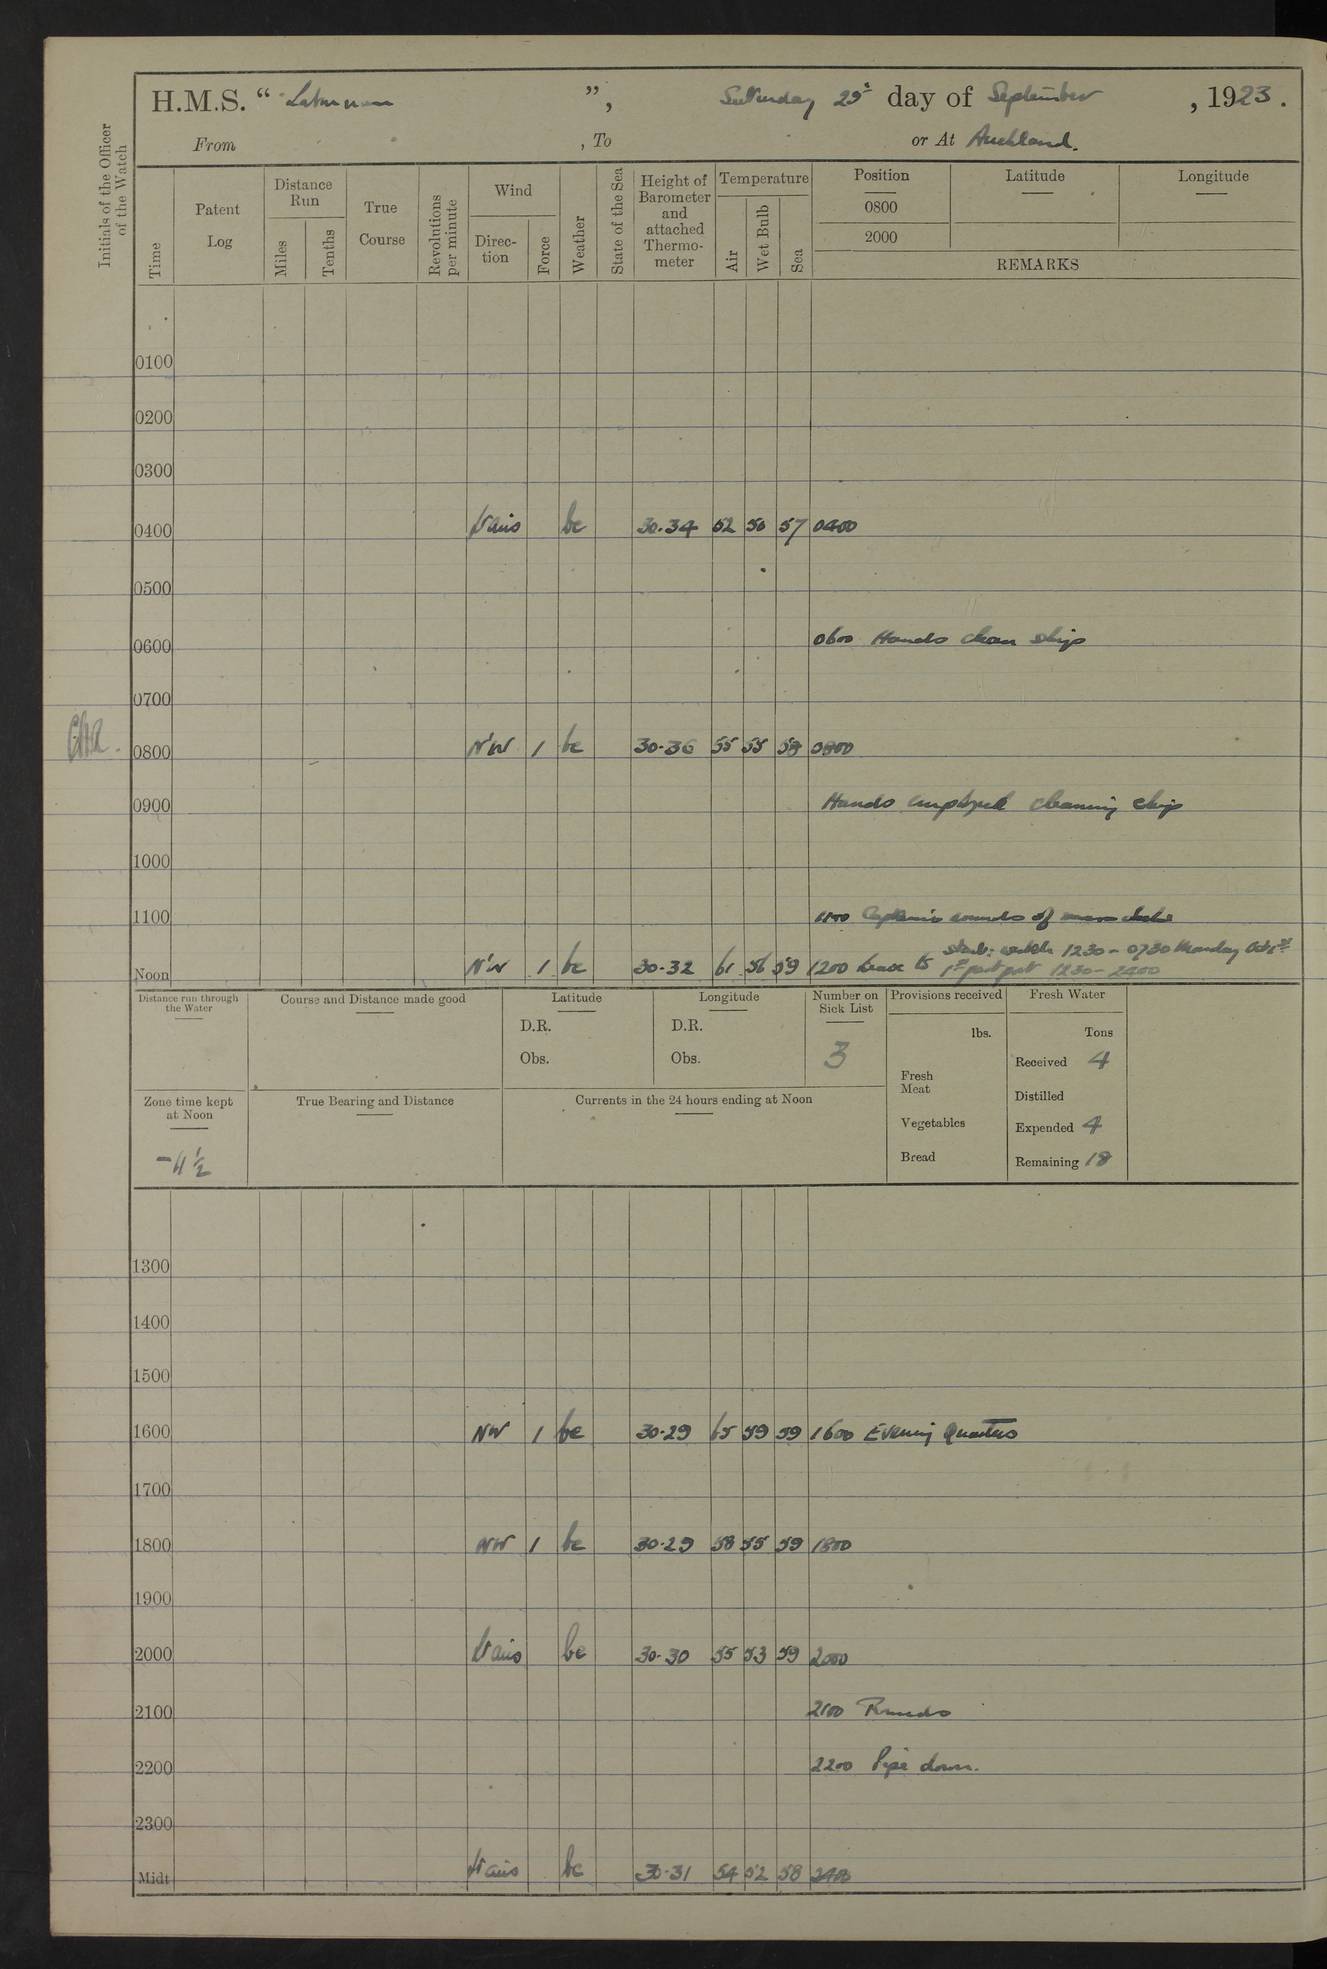 H.M.S. “ Laburnum ”, Saturday 29th day of September, 1923.
From , To or At Auckland.
Initials of the Officer of the Watch
Time
Patent Log
Distance Run
Miles
Tenths
True Course
Revolutions per minute
Wind
Direc-tion
Force
Weather
State of the Sea
Height of Barometer and attached Thermo-meter
Temperature
Air
Wet Bulb
Sea
Position
0800
2000
Latitude
Longitude
REMARKS
0100
0200
0300
0400 Vars bc 30.34 52 50 57 0400
0500
0600 0600 Hands clean ship
0700
0800 N'W 1 bc 30.36 55 53 58 0800
0900 Hands employed cleaning ship
1000
1100 1100 Captain's rounds of mess decks
Noon N'W 1 bc 30.32 61 56 59 1200 Leave to Starb: watch 1230 - 0730 Monday Oct 1st
1st part port 1230 - 2400
Distance run through the Water
Course and Distance made good
Latitude
D.R.
Obs.
Longitude
D.R.
Obs.
Number on Sick List
3
Provisions received
lbs.
Fresh Meat
Vegetables
Bread
Fresh Water
Tons
Received 4
Distilled
Expended 4
Remaining 18
Zone time kept at Noon
-11½
True Bearing and Distance
Currents in the 24 hours ending at Noon
1300
1400
1500
1600 NW 1 bc 30.29 65 59 59 1600 Evening Quarters
1700
1800 NW 1 bc 30.29 58 55 59 1800
1900
2000 Vars bc 30.30 55 53 59 2000
2100 2100 Rounds
2200 2200 Pipe down.
2300
Midt Vars bc 30.31 54 52 58 2400